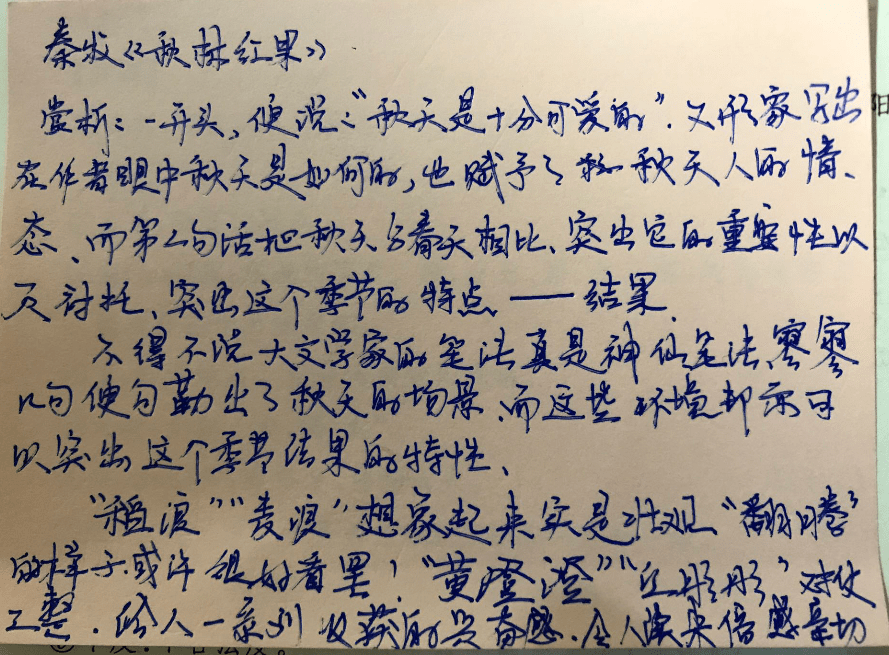 秦牧《秋林红果》
赏析：一开头，便说：“秋天是十分可爱的”．又形象写出
在作者眼中秋天是如何的，也赋予了秋天人的情、
态、而第二句话把秋天与春天相比、突出它的重要性以
及衬托、突出这个季节的特点——结果
不得不说大文学家的笔法真是神仙笔法，寥寥
几句便勾勒出了秋天的场景、而这些环境却亦可
以突出这个季节结果的特性、
“稻浪”“麦浪”想象起来实是壮观“翻腾”
的样子或许很好看罢！“黄澄澄”“红彤彤”对仗
工整．给人一系列收获的兴奋感．令人读来倍感亲切
阳